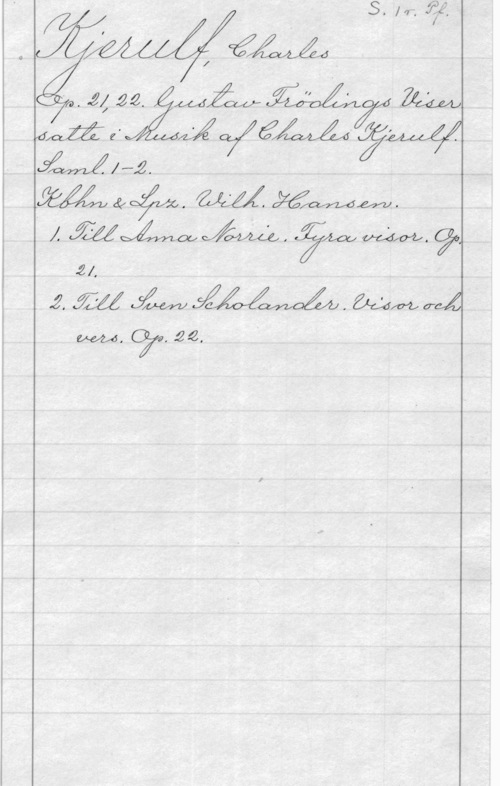 S. 1 r. Pf.
Kjerulf, Charles
Op. 21, 22. Gustav Frödings Viser
satte i Musik af Charles Kjerulf.
Saml. 1-2.
Kbhn & Lpz. Wilh. Hansen.
1. Till Anna Norrie. Fyra visor. Op.
21.
2. Till Sven Scholander. Visor och
vers. Op. 22.